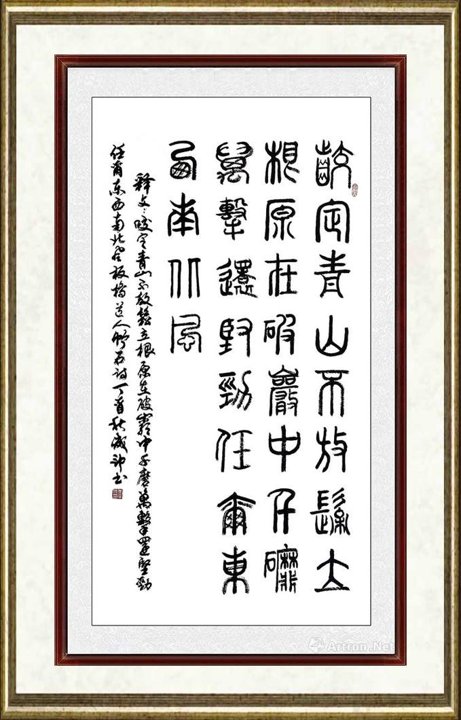 齩定青山不放鬆立
根原在破巖中千磨
萬擊還堅勁任爾東
西南北風
释文：咬定青山不放鬆立根原在破巖中千磨萬擊還堅勁
任尔东西南北風板橋道人竹石诗丁酉秋书
Artron.Net